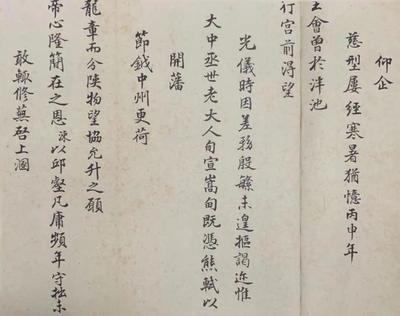 仰企
慈型屢經寒暑猶憶丙申年
會曾於泮池
行宮前得望
光儀時因差務殷繁未遑摳謁近惟
大中丞世老大人旬宣嵩甸既憑熊軾以
開藩
節鉞中州更荷
龍章而分陝物望協允升之願
帝心隆簡在之恩 以邱壑凡庸頻年守拙未
敢輒修蕪啓上溷